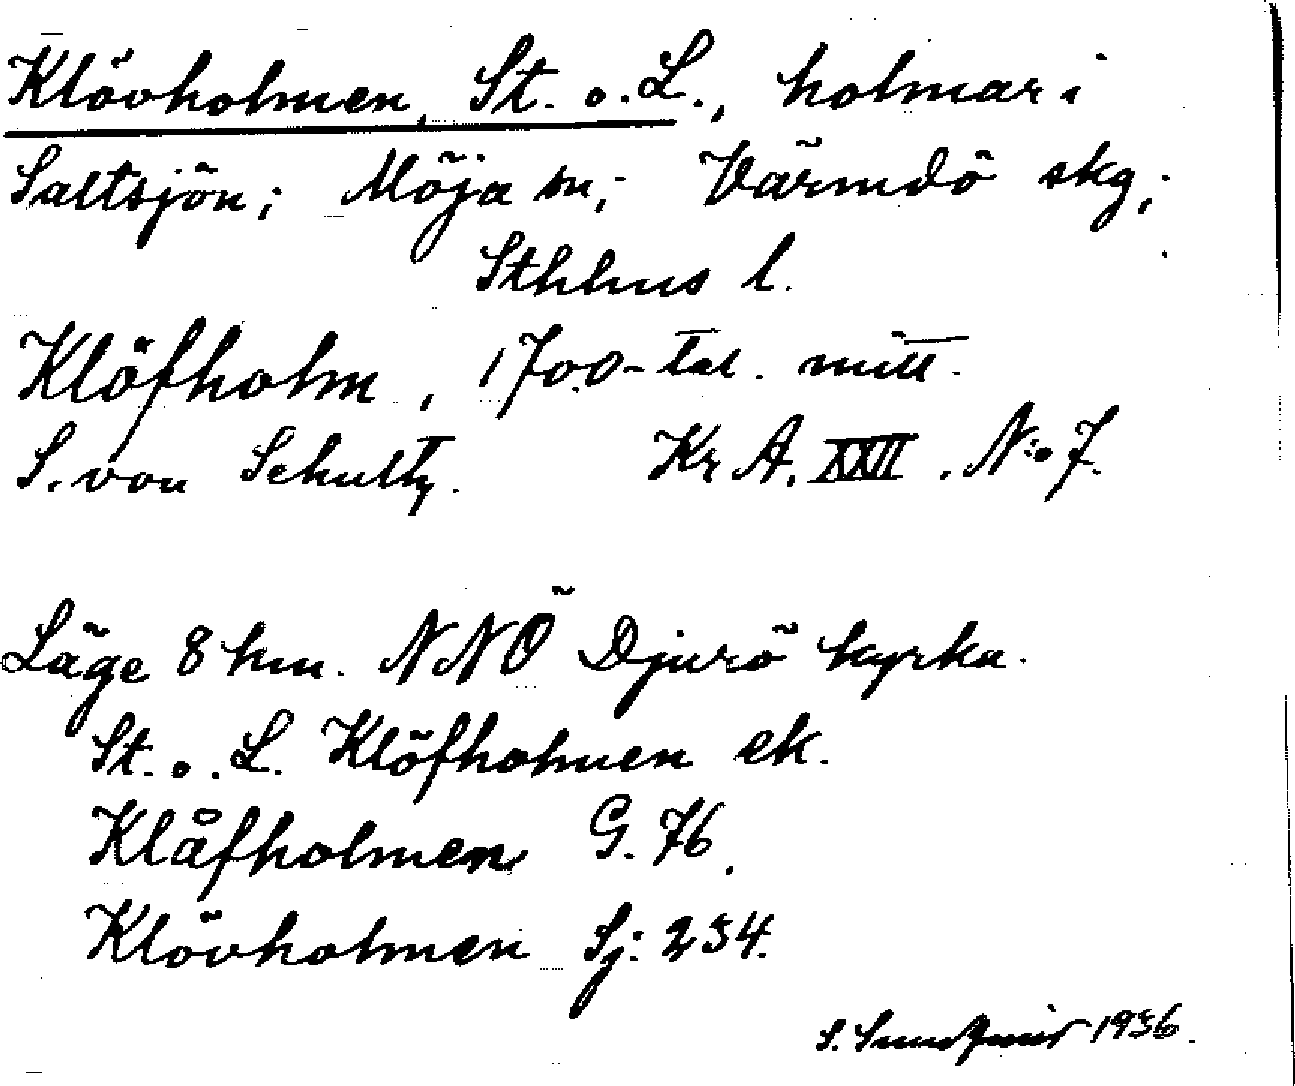 Klövholmen, St. o. L., holmar i
Saltsjön; Möja sn; Värmdö skg;
Sthlms l.
Klöfholm, 1700-tal. mitt.
S. von Schultz. Kr A. XXII. N:o 7.
Läge 8 km. NNÖ Djurö kyrka.
St. o. L. Klöfholmen ek.
Klåfholmen G. 76.
Klövholmen Sj: 234.
S. 1936.